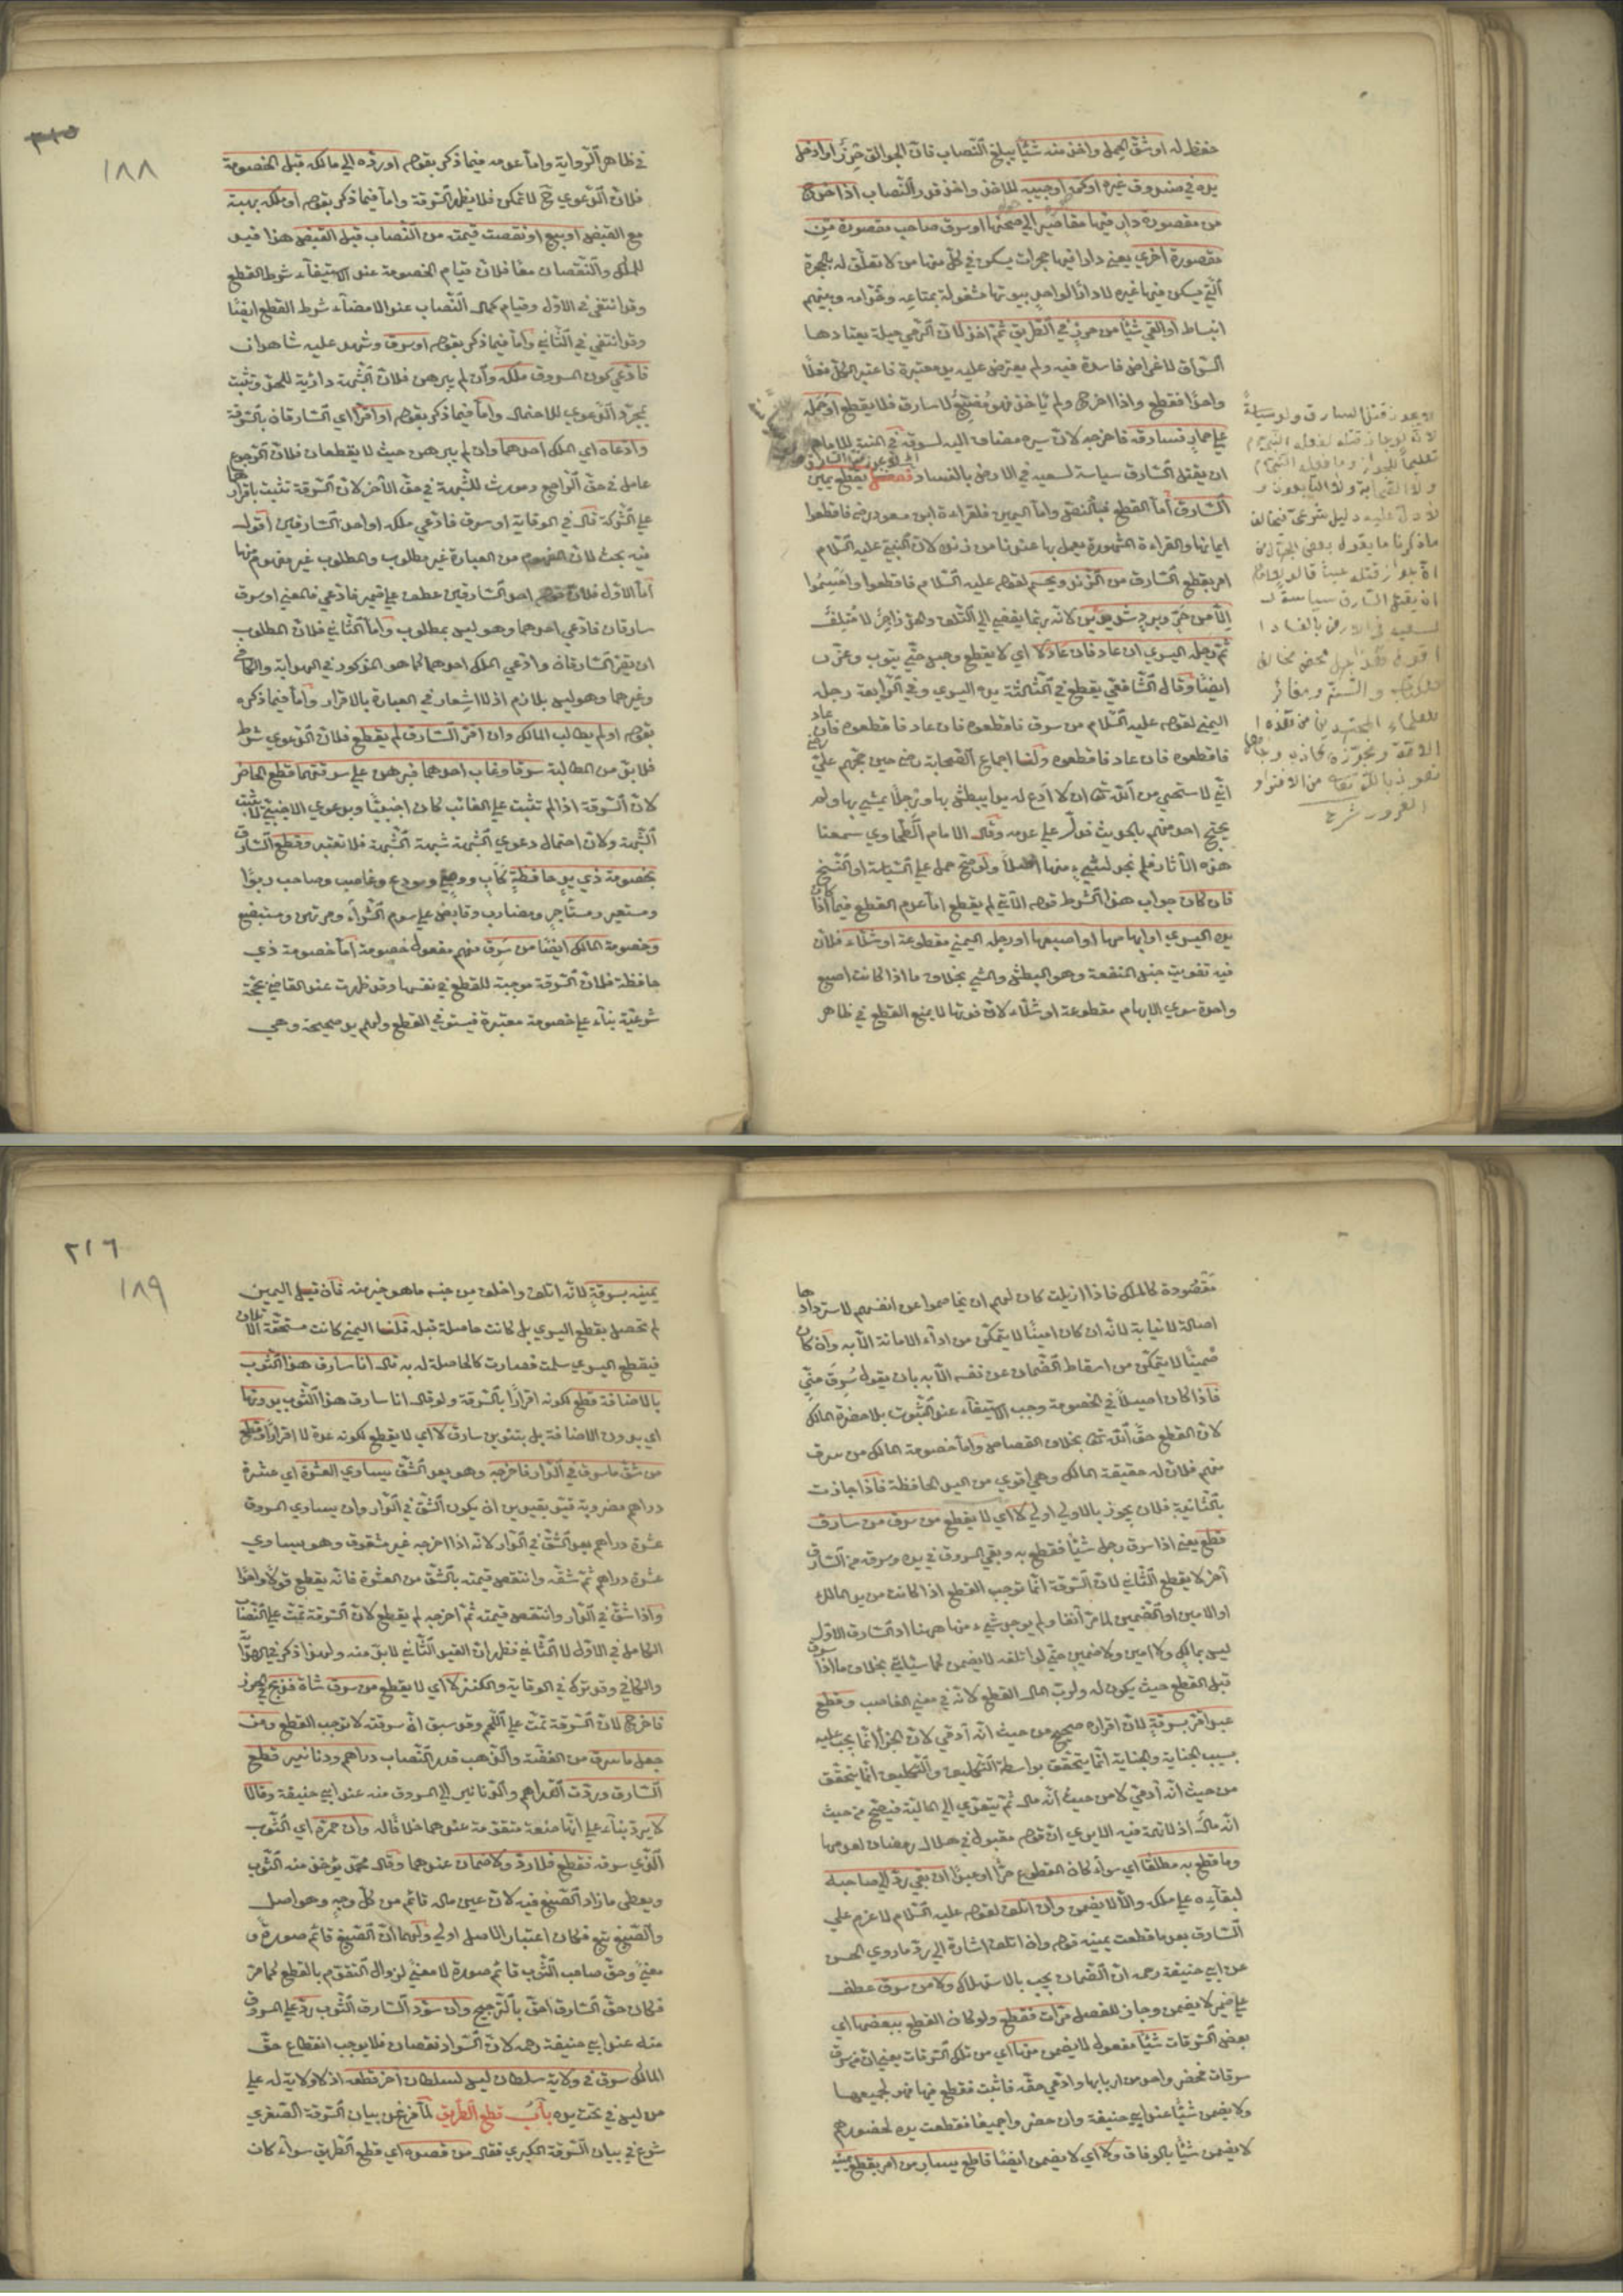 حفظ له او شق الحمل واخذ منه شيئا يبلغ النصاب فان الجوالق حرز او ادخل
يده في صندوق غيره او كمه او جيبه للاخذ واخذ قدر النصاب اذا اخرج
من مقصورة دار فيها مقاصير الى صحنها او سرق صاحب مقصورة من
مقصورة اخرى يعني دارا فيها حجرات يسكن في كل منها من لا تعلق له بالحجرة
التي يسكن فيها غيره لا دار الواحد بيوتها مشغولة بمتاعه وخدامه وبينهم
انبساط او القى شيئا من حرز في الطريق ثم اخذ لان الرمي حيلة يعتادها
السراق لاغراض فاسدة فيه ولم يعترض عليه يد معتبرة فاعتبر الكل فعلا
واحدا فقطع واذا اخرج ولم ياخذ فهو مضيع لا سارق فلا يقطع او حمله
على حمار فساقه فاخرجه لان سيره مضاف اليه لسوقه
ان يقتل السارق سياسة لسعيه في الارض بالفساد يقطع يمين
السارق اما القطع فبالنص واما اليمين فلقراءة ابن مسعود رضه فاقطعوا
ايمانهما والقراءة المشهورة يعمل بها عندنا من زنده لان النبي عليه السلام
امر بقطع السارق من الزند ويحسم لقوله عليه السلام فاقطعوا واحسموا
الا من حر وبرد شديدين لانه ربما يفضي الى التلف والحد زاجر لا متلف
ثم رجله اليسرى ان عاد فان عاد لا اي لا يقطع وحبس حتى يتوب وعزر
ايضا وقال الشافعي يقطع في الثالثة يده اليسرى وفي الرابعة رجله
اليمنى لقوله عليه السلام من سرق فاقطعوه فان عاد فاقطعوه فان عاد
فاقطعوه فان عاد فاقطعوه ولنا اجماع الصحابة رضه حين حجهم علي رضه
اني لاستحيي من الله تعالى ان لا ادع له يدا يبطش بها ورجلا يمشي بها ولم
يحتج احد منهم بالحديث فدل على عدمه وقال الامام الطحاوي تتبعنا
هذه الآثار فلم نجد لشيء منها اصلا ولو صح حمل على السياسة او النسخ
فان كان جواب هذا الشرط قوله الآتي لم يقطع اما عدم القطع فيما اذا كان
يده اليسرى او ابهامها او اصبعها او رجله اليمنى مقطوعة او شلاء فلان
فيه تفويت جنس المنفعة وهو البطش والمشي بخلاف ما اذا كانت اصبع
واحدة سوى الابهام مقطوعة او شلاء لان فوتها لا يمنع القطع في ظاهر
لا يجوز قتل السارق ولو سياسة
ماذكرنا ما يقول بعض
ان يقتل السارق سياسة
لسعيه في الارض بالفساد
الغرور شرح
١٨٨
في ظاهر الرواية واما عدمه فيما ذكر بقوله او رده الى مالكه قبل الخصومة
فلان الدعوى ح لا تمكن فلا يظهر السرقة واما فيما ذكر بقوله او ملكه بهبة
مع القبض او بيع او نقصت قيمته من النصاب قبل القبض هذا قيد
للملك والنقصان معا فلان قيام الخصومة عند الاستيفاء شرط القطع
وقد انتفى في الاول وقيام كمال النصاب عند الامضاء شرط القطع ايضا
وقد انتفى في الثاني واما فيما ذكر بقوله او سرق وشهد عليه شاهدان
فادعى كون المسروق ملكه وان لم يبرهن فلان الشبهة دارئة للحد وتثبت
بمجرد الدعوى للاحتمال واما فيما ذكر بقوله او اقرا اي السارقان بالسرقة
وادعاه اي الملك احدهما وان لم يبرهن حيث لا يقطعان فلان الرجوع
عامل في حق الراجع ومورث للشبهة في حق الآخر لان السرقة تثبت باقرارهما
على الشركة قال في الوقاية او سرق فادعى ملكه او احد السارقين اقول
فيه بحث لان المفهوم من العبارة غير مطلوب والمطلوب غير مفهوم منها
اما الاول فلان قوله احد السارقين عطف على ضمير فادعى فالمعنى او سرق
سارقان فادعى احدهما وهو ليس بمطلوب واما الثاني فلان المطلوب
ان يقر السارقان وادعى الملك احدهما كما هو المذكور في الهداية والكافي
وغيرهما وهو ليس بلازم اذ لا اشعار في العبارة بالاقرار واما فيما ذكره
بقوله او لم يطالب المالك وان اقر السارق لم يقطع فلان الدعوى شرط
فلا بد من المطالبة سرقا وغاب احدهما فبرهن على سرقتهما قطع الحاضر
لان السرقة اذا لم تثبت على الغائب كان اجنبيا وبدعوى الاجنبي لا تثبت
الشبهة ولان احتمال دعوى الشبهة شبهة الشبهة فلا تعتبر وقطع السارق
بخصومة ذي يد حافظة كاب ووصي ومودع وغاصب وصاحب ربوا
ومستعير ومستأجر ومضارب وقابض على سوم الشراء ومرتهن ومستبضع
وخصومة المالك ايضا من سرق منهم مفعول خصومة اما خصومة ذي
حافظة فلان السرقة موجبة للقطع في نفسها وقد ظهرت عند القاضي بحجة
شرعية بناء على خصومة معتبرة فيستوفى القطع ولهم يد صحيحة وهي
مقصودة كالملك فاذا ازيلت كان لهم ان يخاصموا عن انفسهم لاستردادها
اصالة لا نيابة لانه ان كان امينا لا يتمكن من اداء الامانة الا به وان كان
ضمينا لا يتمكن من اسقاط الضمان عن نفسه الا به بان يقول سرق مني
فاذا كان اصيلا في الخصومة وجب الاستيفاء عند الثبوت بلا حضرة المالك
لان القطع حق الله تعالى بخلاف القصاص واما خصومة المالك من سرق
منهم فلان له حقيقة الملك وهي اقوى من اليد الحافظة فاذا جازت
بالثانية فلان يجوز بالاولى اولى لا اي لا يقطع من سرق من سارق
قطع يعني اذا سرق رجل شيئا فقطع به وبقي المسروق في يده وسرقه من السارق
آخر لا يقطع الثاني لان السرقة انما توجب القطع اذا كانت من يد المالك
او الامين او الضمين لما مر آنفا ولم يوجد شيء منها ههنا اذ السارق الاول
ليس بمالك ولا امين ولا ضمين حتى لو اتلفه لا يضمن كما سيأتي بخلاف ما اذا سرق
قبل القطع حيث يكون له ولرب المال القطع لانه في معنى الغاصب وقطع
عبد اقر بسرقة لان اقراره صحيح من حيث انه آدمي لان الجزاء انما يجب عليه
بسبب الجناية والجناية انما يتحقق بواسطة التكليف والتكليف انما يتحقق
من حيث انه آدمي لا من حيث انه مال ثم يتعدى الى المالية فيصح من حيث
انه مال اذ لا تهمة فيه الا يرى ان قوله مقبول في هلال رمضان لعدمها
وما قطع به مطلقا اي سواء كان المقطوع حرا او عبدا ان بقي رد الى صاحبه
لبقاءه على ملكه والا لا يضمن وان اتلف لقوله عليه السلام لا غرم على
السارق بعد ما قطعت يمينه قوله وان اتلف اشارة الى رد ما روى الحسن
عن ابي حنيفة رحمه ان الضمان يجب بالاستهلاك ولا من سرق عطف
على ضمير لا يضمن وجاز للفصل مرات فقطع ولو كان القطع ببعضها اي
بعض السرقات شيئا مفعول لا يضمن منها اي من تلك السرقات يعني ان من سرق
سرقات فحضر واحد من اربابها وادعى حقه فاثبت فقطع فيها فهو لجميعها
ولا يضمن شيئا عند ابي حنيفة وان حضروا جميعا فقطعت يده لحضورهم
لا يضمن شيئا بالوفاق ولا اي لا يضمن ايضا قاطع يسار من امر بقطع يمينه
٢١٦
١٨٩
يمينه بسرقة لانه اتلف واخلف من جنسه ما هو خير منه فان قيل اليمين
لم تحصل بقطع اليسرى بل كانت حاصلة قبله قلنا اليمنى كانت مستحقة الاتلاف
فبقطع اليسرى سلمت فصارت كالحاصلة له به قال انا سارق هذا الثوب
بالاضافة قطع لكونه اقرارا بالسرقة ولو قال انا سارق هذا الثوب بدونها
اي بدون الاضافة بل بتنوين سارق لا اي لا يقطع لكونه عدة لا اقرارا وقطع
من شق ما سرق في الدار فاخرجه وهو بعد الشق يساوي العشرة اي عشرة
دراهم مضروبة قيد بقيدين ان يكون الشق في الدار وان يساوي المسروق
عشرة دراهم بعد الشق في الدار لانه اذا اخرجه غير مشقوق وهو يساوي
عشرة دراهم ثم شقه وانتقص قيمته بالشق من العشرة فانه يقطع قولا واحدا
واذا شق في الدار وانتقص قيمته ثم اخرجه لم يقطع لان السرقة تمت على النصاب
الكامل في الاول لا الثاني فظهر ان القيد الثاني لا بد منه ولهذا ذكر في الهداية
والكافي وقد تركه في الوقاية والكنز لا اي لا يقطع من سرق شاة فذبح في الحرز
فاخرج لان السرقة تمت على اللحم وقد سبق ان سرقته لا توجب القطع ومن
جعل ما سرق من الفضة والذهب قدر النصاب دراهم ودنانير قطع
السارق وردت الدراهم والدنانير الى المسروق منه عند ابي حنيفة وقالا
لا يرد بناء على انها صنعة متقومة عندهما خلافا له وان حمره اي الثوب
الذي سرقه فقطع فلا رد ولا ضمان عندهما وقال محمد يؤخذ منه الثوب
ويعطى ما زاد الصبغ فيه لان عين ماله قائم من كل وجه وهو اصل
والصبغ تبع فكان اعتبار الاصل اولى ولهما ان الصبغ قائم صورة و
معنى وحق صاحب الثوب قائم صورة لا معنى لزوال التقوم بالقطع كما مر
فكان حق السارق احق بالترجيح وان سود السارق الثوب رد على المسروق
منه عند ابي حنيفة رحمه لان السواد نقصان فلا يوجب انقطاع حق
المالك سرق في ولاية سلطان ليس لسلطان آخر قطعه اذ لا ولاية له على
من ليس في تحت يده باب قطع الطريق لما فرغ من بيان السرقة الصغرى
شرع في بيان السرقة الكبرى فقال من قصده اي قطع الطريق سواء كان